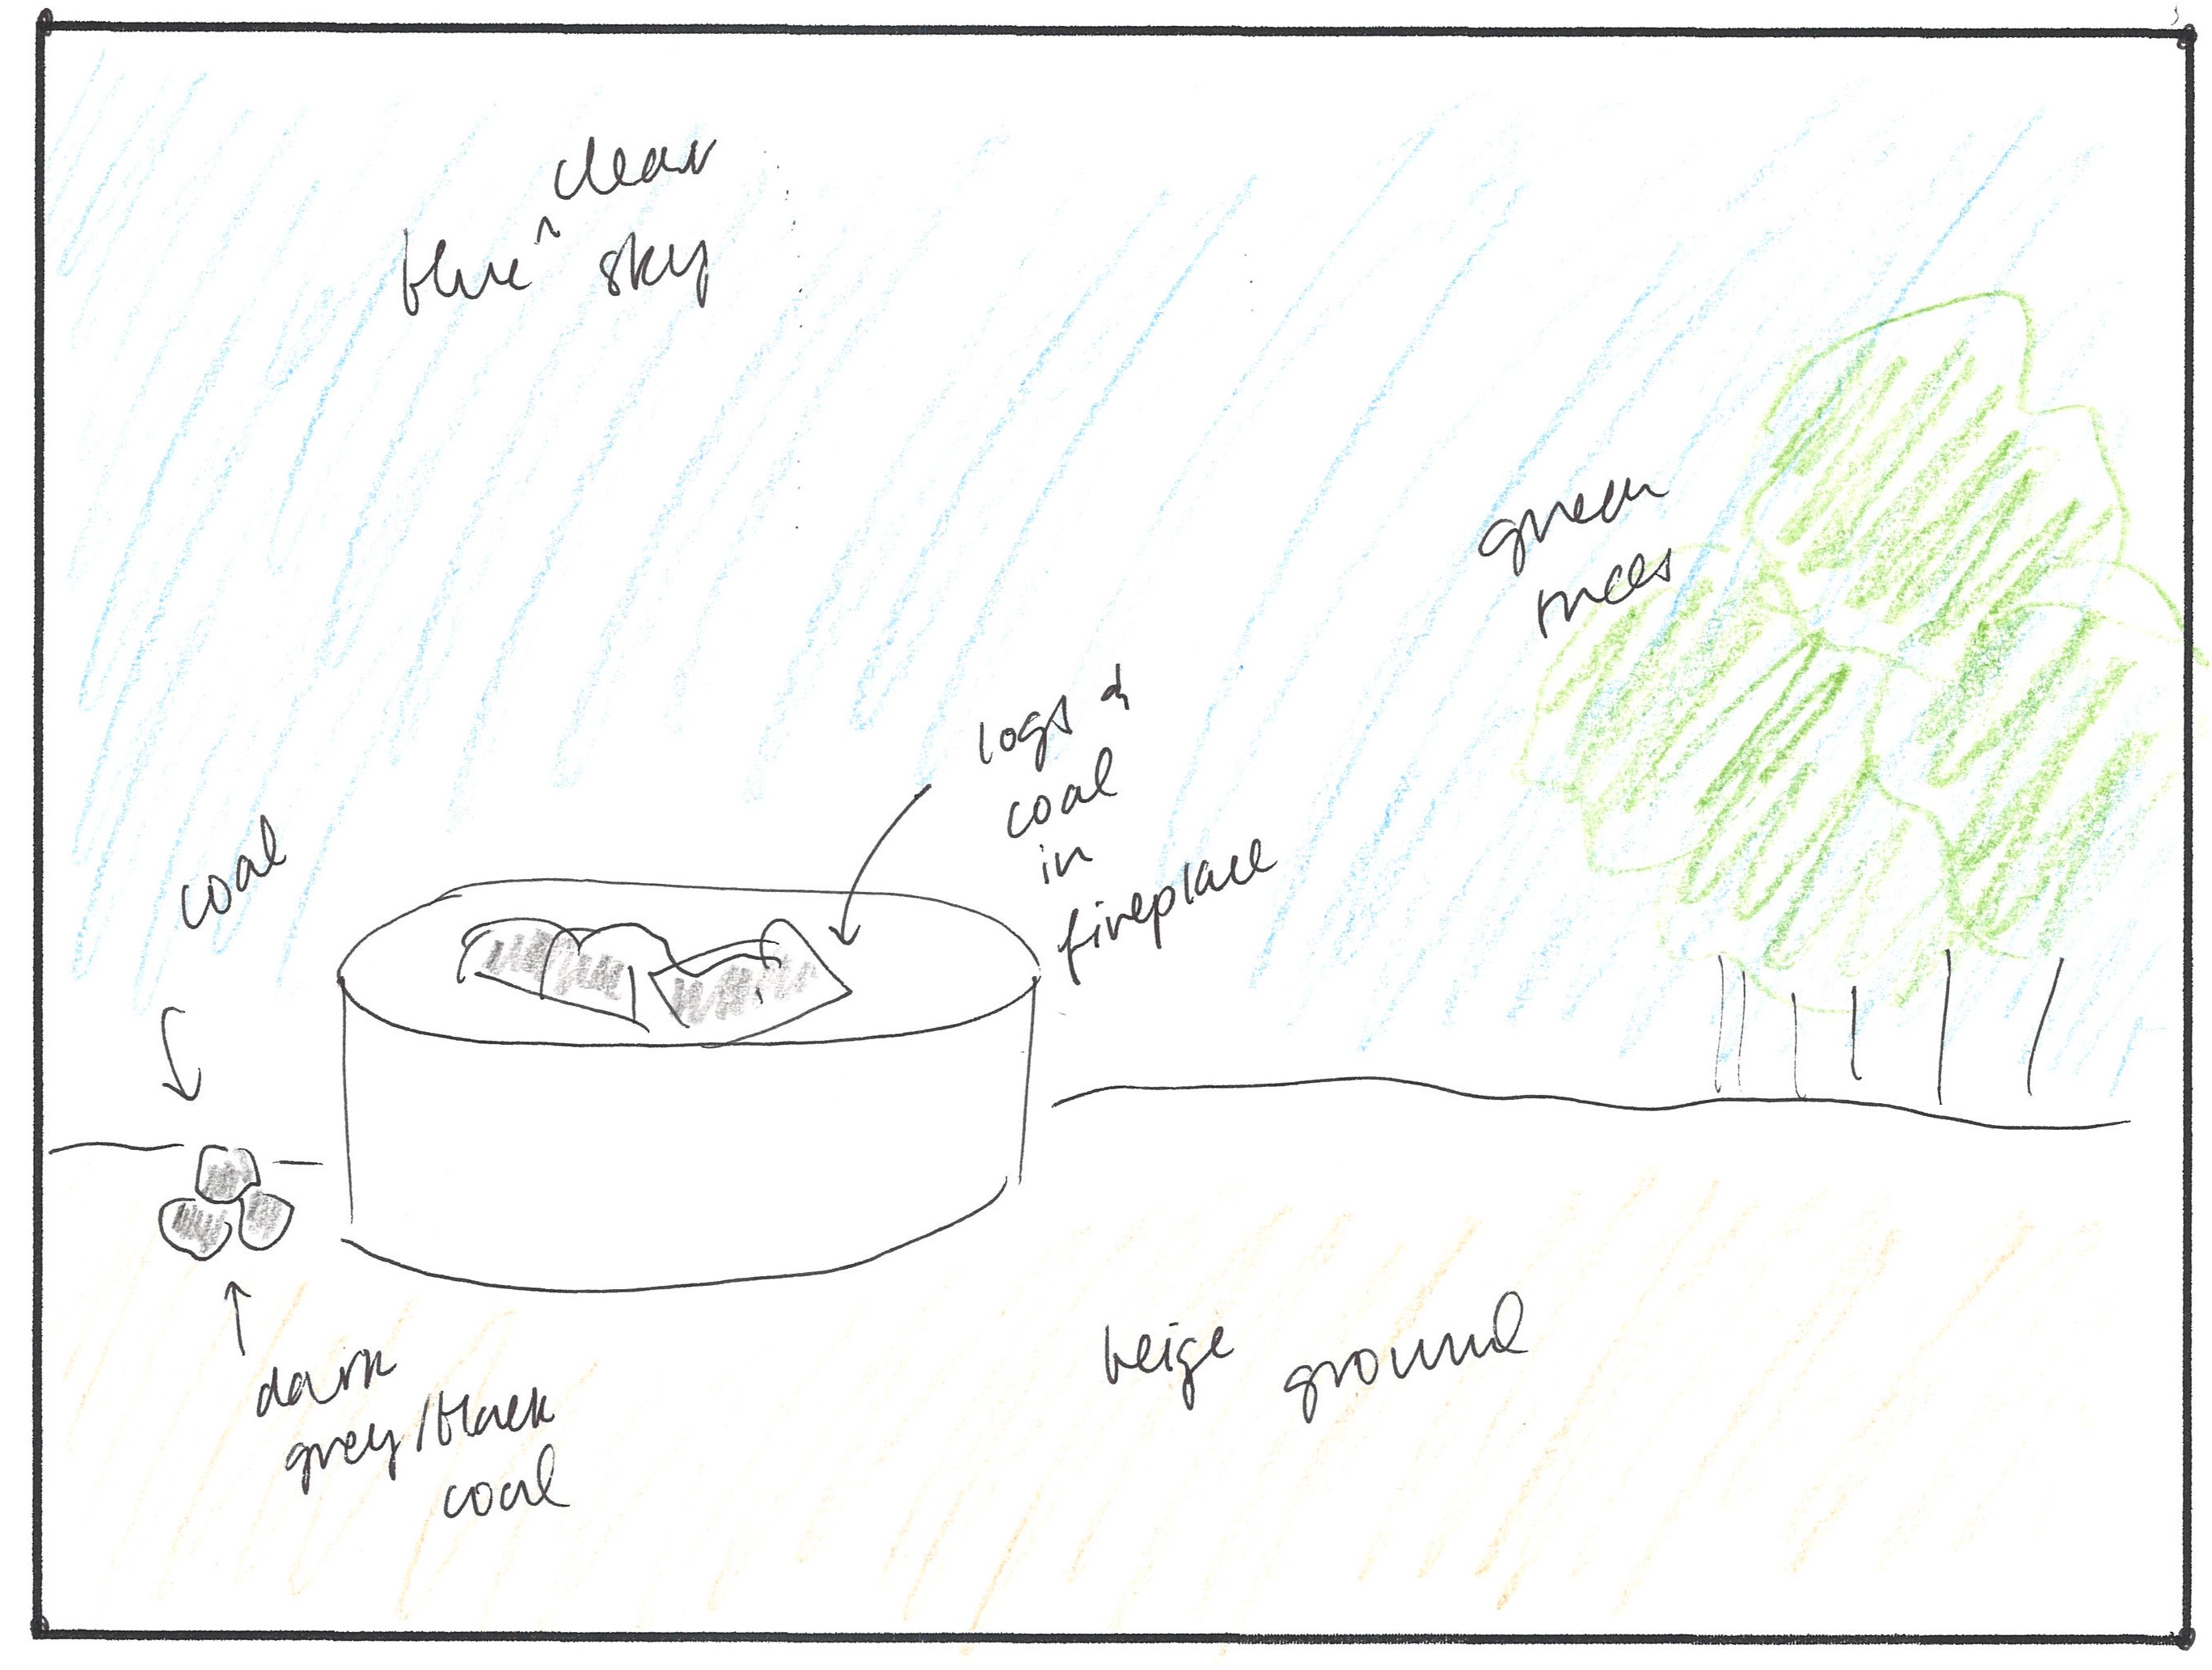 clear
blue ^ sky
green
trees
logs &
coal
in
fireplace
coal
dark
grey/black
coal
beige ground